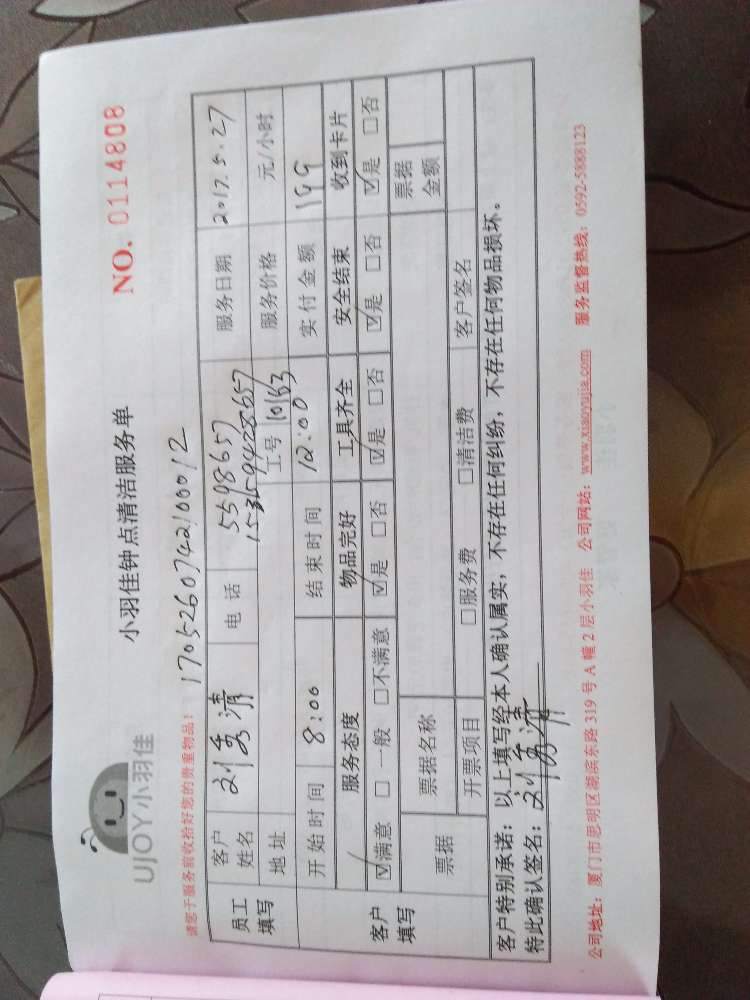 UJOY小羽佳
小羽佳钟点清洁服务单
NO. 0114808
请您于服务前收拾好您的贵重物品：
170526074210012
员工填写 客户姓名 刘秀清 电话 5598657 服务日期 2017.5.27
15359428657
地址 工号 10163 服务价格 元/小时
开始时间 8:00 结束时间 12:00 实付金额 199
客户填写 服务态度 物品完好 工具齐全 安全结束 收到卡片
☑满意 □一般 □不满意 ☑是 □否 ☑是 □否 ☑是 □否 ☑是 □否
票据 票据名称 票据金额
开票项目 □服务费 □清洁费 客户签名
客户特别承诺：以上填写经本人确认属实，不存在任何纠纷，不存在任何物品损坏。
特此确认签名：刘秀清
公司地址：厦门市思明区湖滨东路 319 号 A 幢 2 层小羽佳 公司网站：www.xiaoyujia.com 服务监督热线：0592-5888123